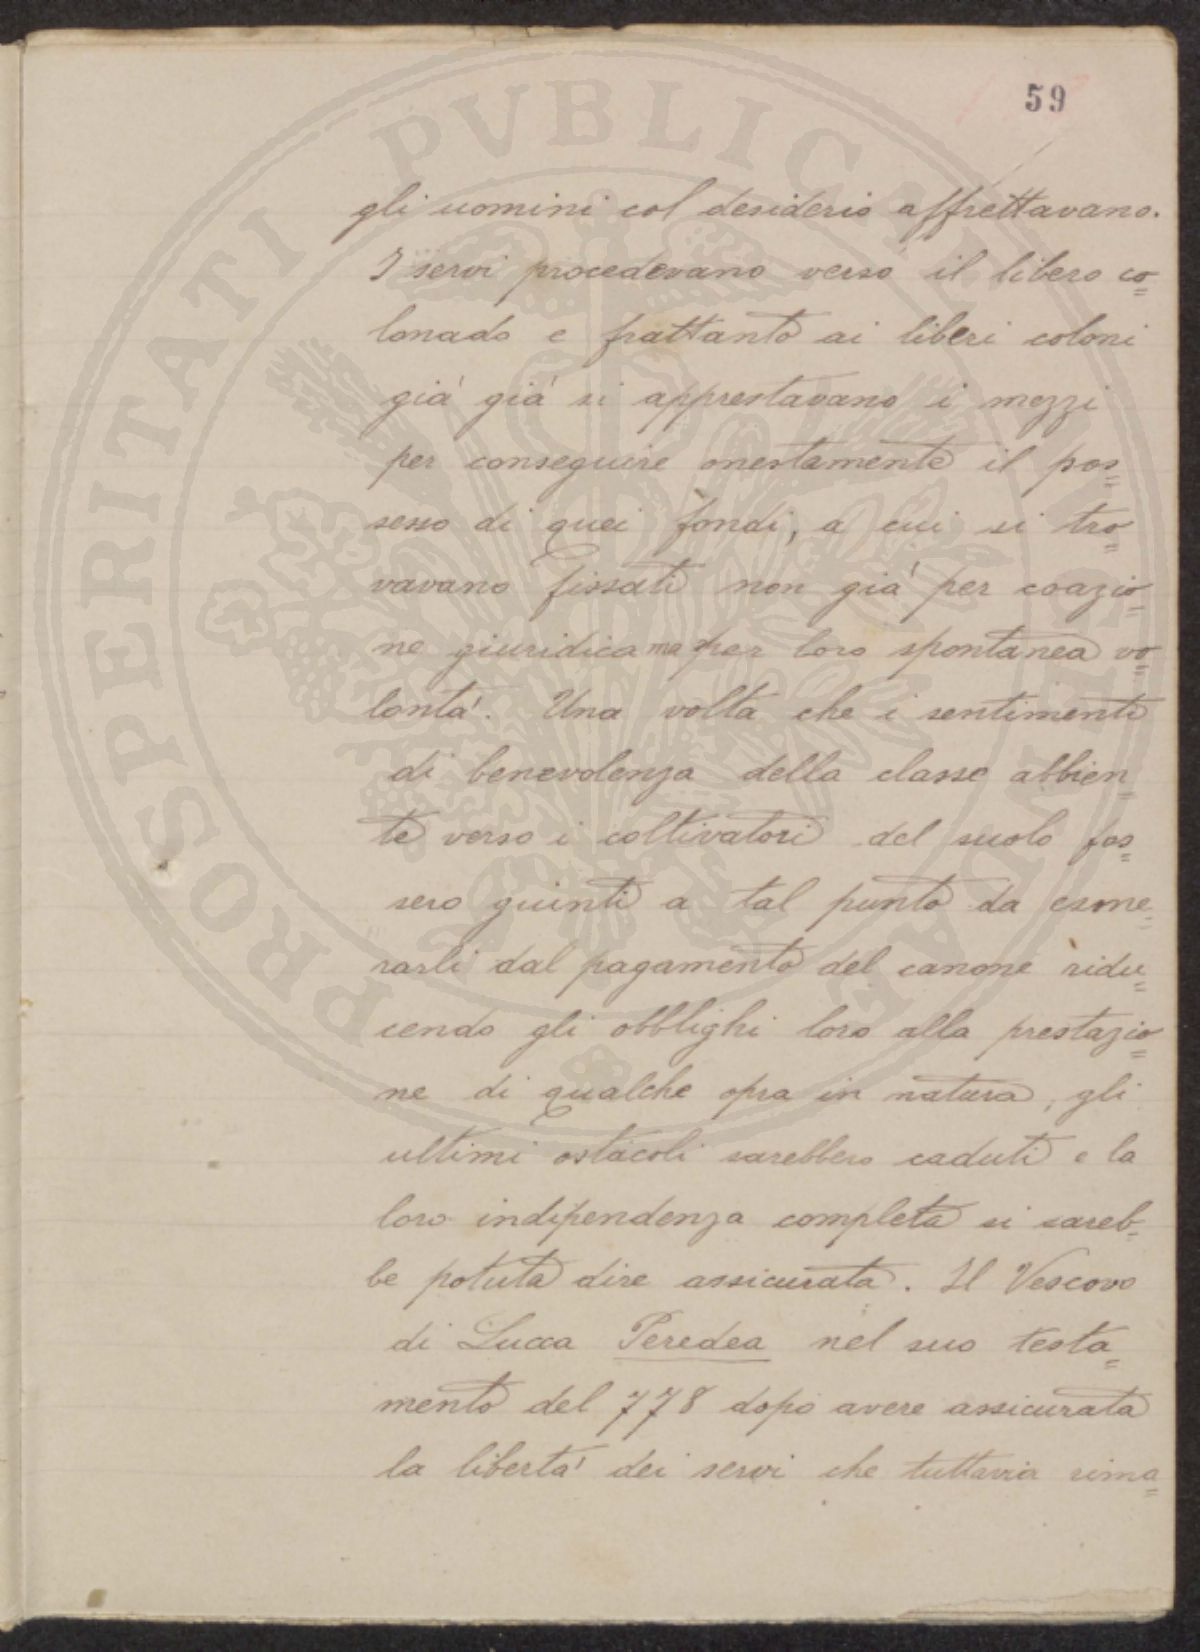 PROSPERITATI PVBLICAE AVGENDAE
59
gli uomini col desiderio affrettavano.
I servi procedevano verso il libero co=
lonado e frattanto ai liberi coloni
già già si apprestavano i mezzi
per conseguire onestamente il pos=
sesso di quei fondi, a cui si tro=
vavano fissati non già per coazio=
ne giuridica ma per loro spontanea vo=
lontà. Una volta che i sentimenti
di benevolenza della classe abbien=
te verso i coltivatori del suolo fos=
sero giunti a tal punto da esone=
rarli dal pagamento del canone ridu=
cendo gli obblighi loro alla prestazio=
ne di qualche opra in natura, gli
ultimi ostacoli sarebbero caduti e la
loro indipendenza completa si sareb=
be potuta dire assicurata. Il Vescovo
di Lucca Peredea nel suo testa=
mento del 778 dopo avere assicurata
la libertà dei servi che tuttavia rima=